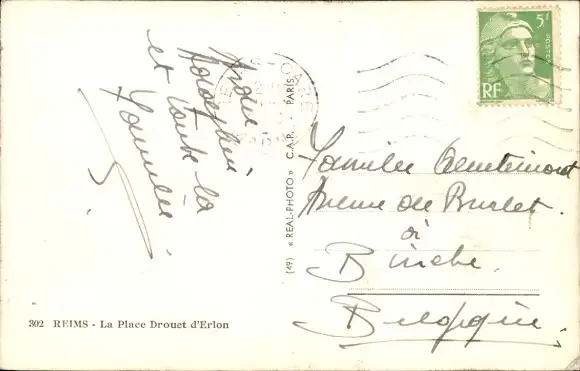 André
Adolphine
et toute la
famille
5F
POSTES
RF
Famille
Avenue du Burlet.
à
Binche.
Belgique.
(49) « REAL-PHOTO » C.A.P. - PARIS
302 REIMS - La Place Drouet d'Erlon